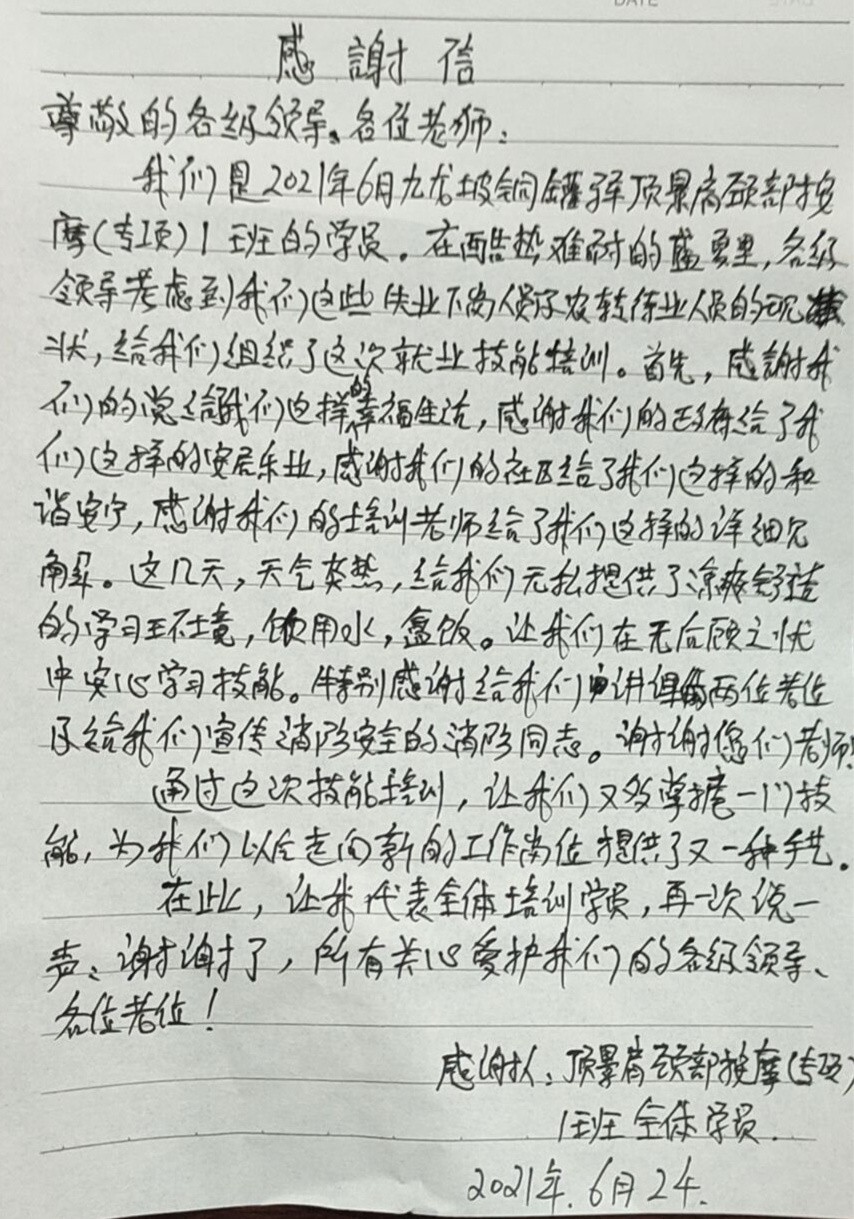 DATE
感謝信
尊敬的各级领导、各位老师：
我们是2021年6月九龙坡铜罐驿顶景肩颈部按
摩(专项)1班的学员。在酷热难耐的盛夏里，各级
领导考虑到我们这些失业下岗人员及农转待业人员的现
状，给我们组织了这次就业技能培训。首先，感謝我
们的党给我们这样的幸福生活，感谢我们的政府给了我
们这样的安居乐业，感谢我们的社区给了我们这样的和
谐安宁，感谢我们的培训老师给了我们这样的详细见
解。这几天，天气炎热，给我们无私提供了凉爽舒适
的学习环境，饮用水，盒饭。让我们在无后顾之忧
中安心学习技能。特别感谢给我们讲课的两位老位
及给我们宣传消防安全的消防同志。谢谢您们老师！
通过这次技能培训，让我们又多掌握一门技
能，为我们以后走向新的工作岗位提供了又一种手艺。
在此，让我代表全体培训学员，再一次说一
声：谢谢了，所有关心爱护我们的各级领导、
各位老位！
感谢人：顶景肩颈部按摩(专项)
1班全体学员.
2021年.6月24.